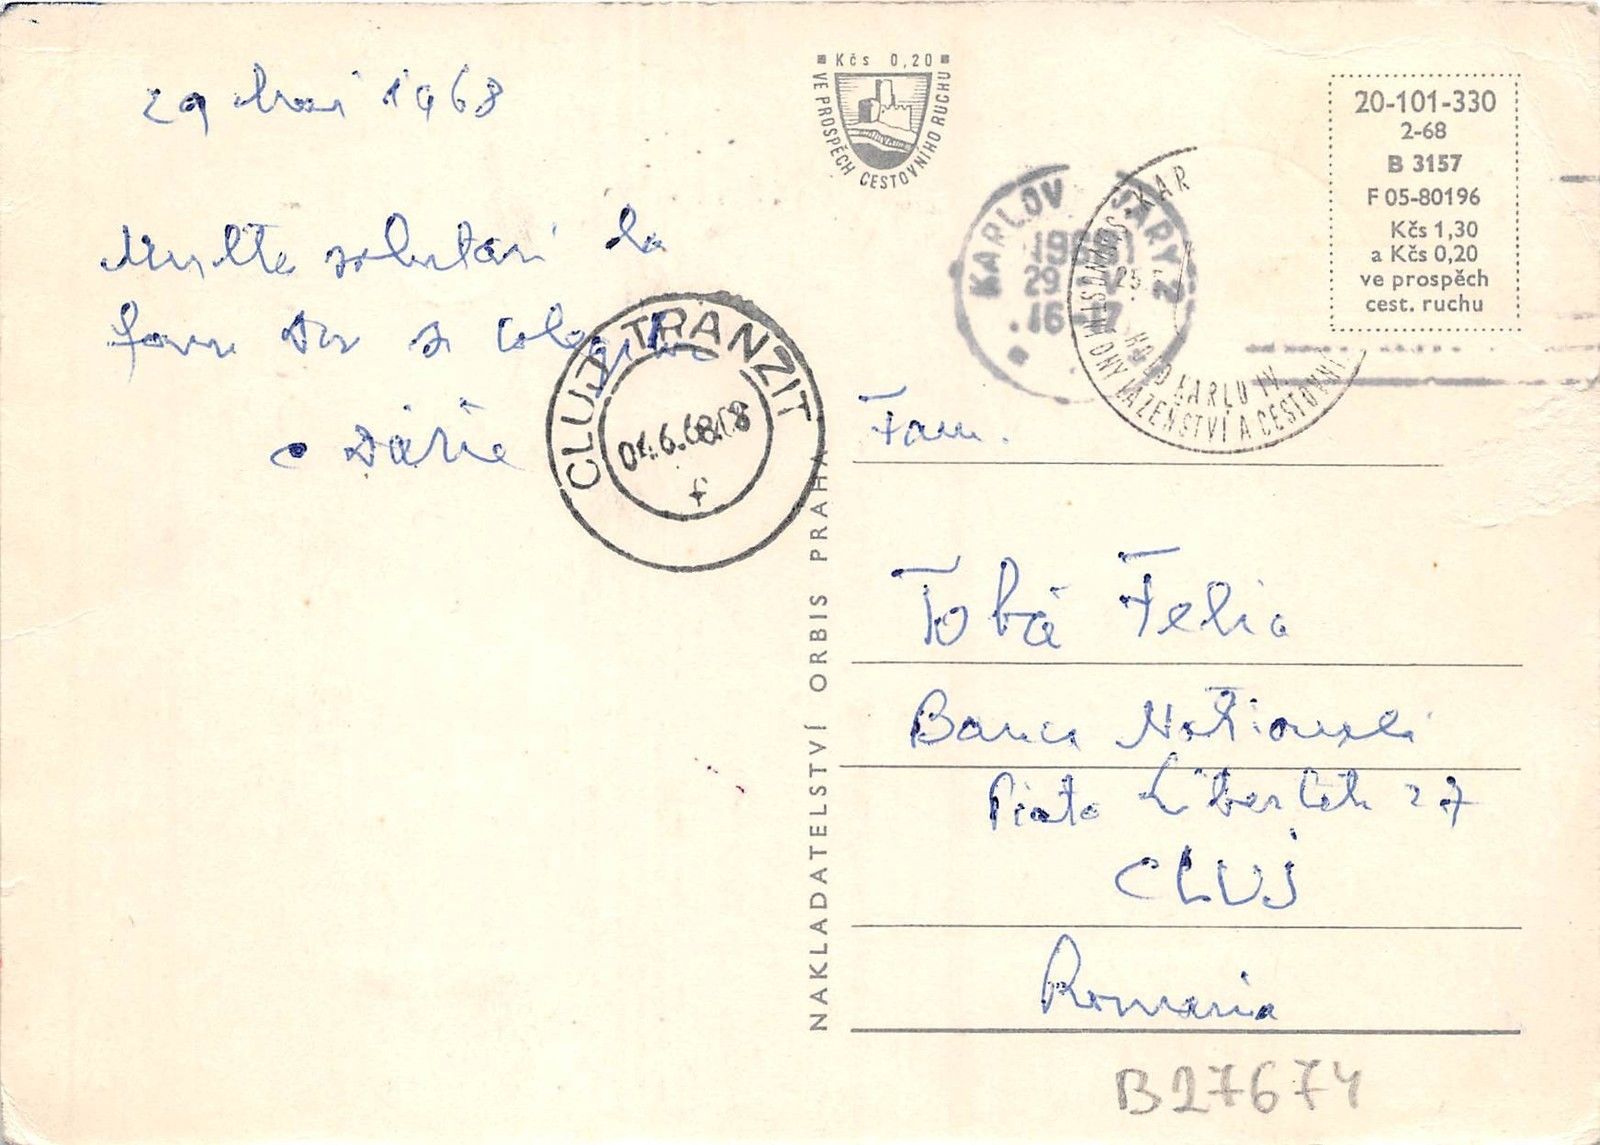 29 mai 1968
Multe salutari la
fam
Kčs 0,20
VE PROSPĚCH CESTOVNÍHO RUCHU
KARLOVY VARY 2
29. V.
16-17
HOLD KARLU IV.
LÁZEŇSTVÍ A CESTOVNÍ
20-101-330
2-68
B 3157
F 05-80196
Kčs 1,30
a Kčs 0,20
ve prospěch
cest. ruchu
CLUJ TRANZIT
01.6.68.18
f
NAKLADATELSTVÍ ORBIS PRAHA
Fam.
Tobá Felia
Banca Nationala
Piata Libertatii 27
CLUJ
Romania
B27674